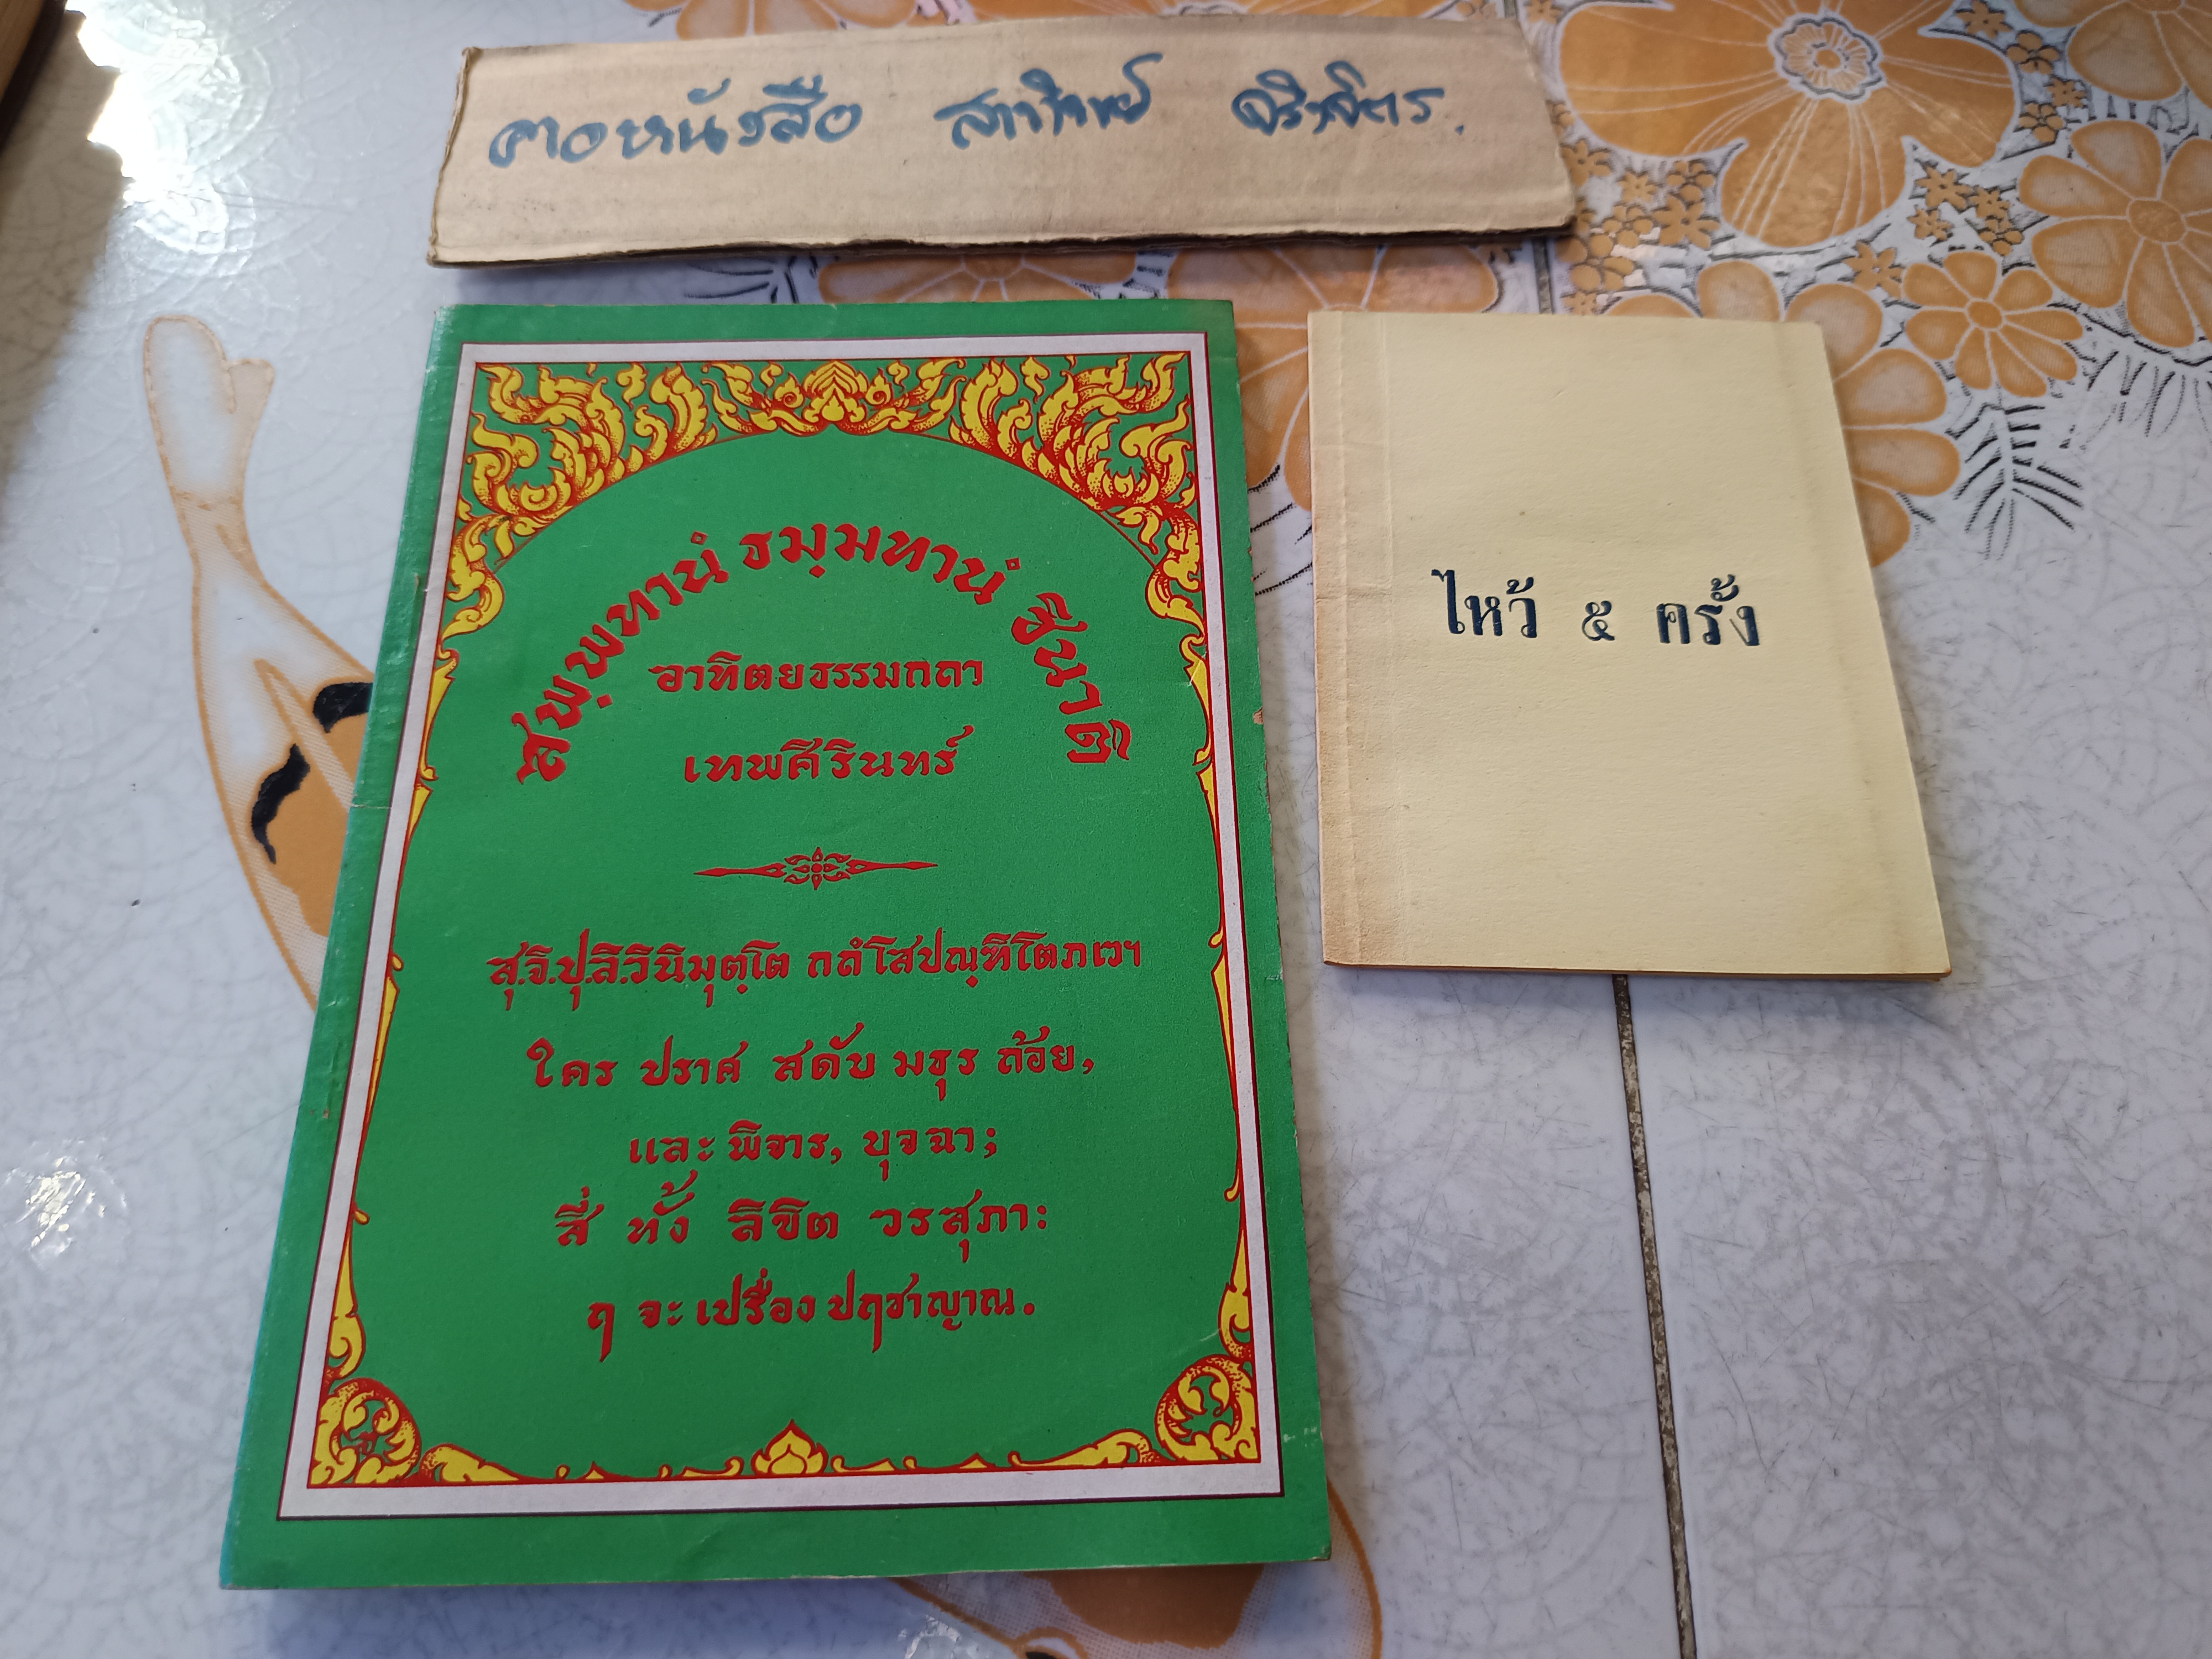 คอหนังสือ
สพฺพทานํ ธมฺมทานํ ชินาติ
อาทิตยธรรมกถา
เทพศิรินทร์
สุ.จิ.ปุ.ลิ.วินิมุตฺโต กถํโสปณฺฑิโตภเวฯ
ใคร ปราศ สดับ มธุร ถ้อย,
และ พิจาร, บุจฉา;
สี่ ทั้ง ลิขิต วรสุภา:
ฤ จะ เปรื่อง ปฤชาญาณ.
ไหว้ ๕ ครั้ง